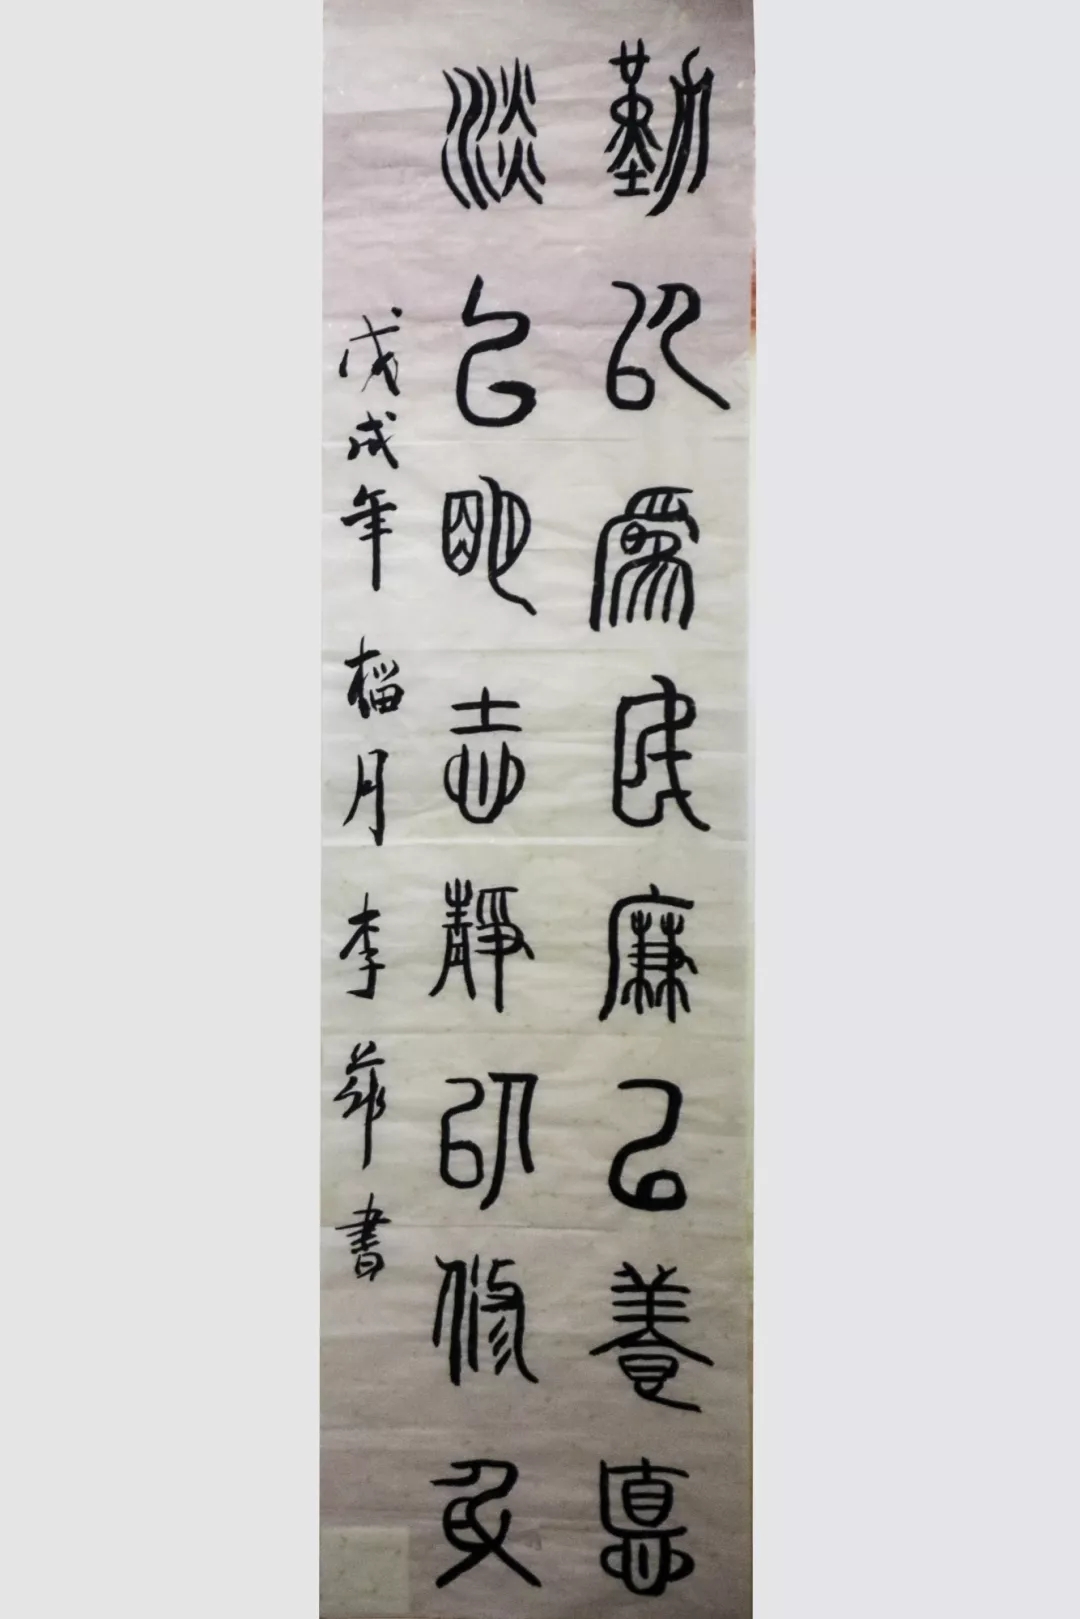 勤以為民廉以養悳
淡以明志靜以修身
戊戌年榴月李華書